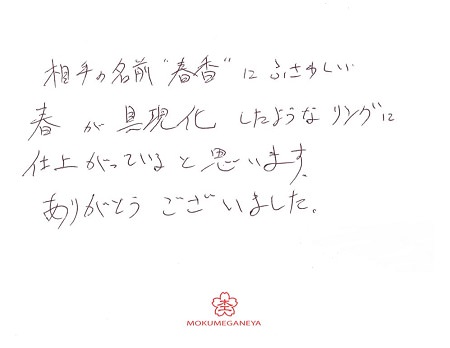 相手の名前"春香"にふさわしい
春が具現化したようなリングに
仕上がっていると思います。
ありがとうございました。
MOKUMEGANEYA